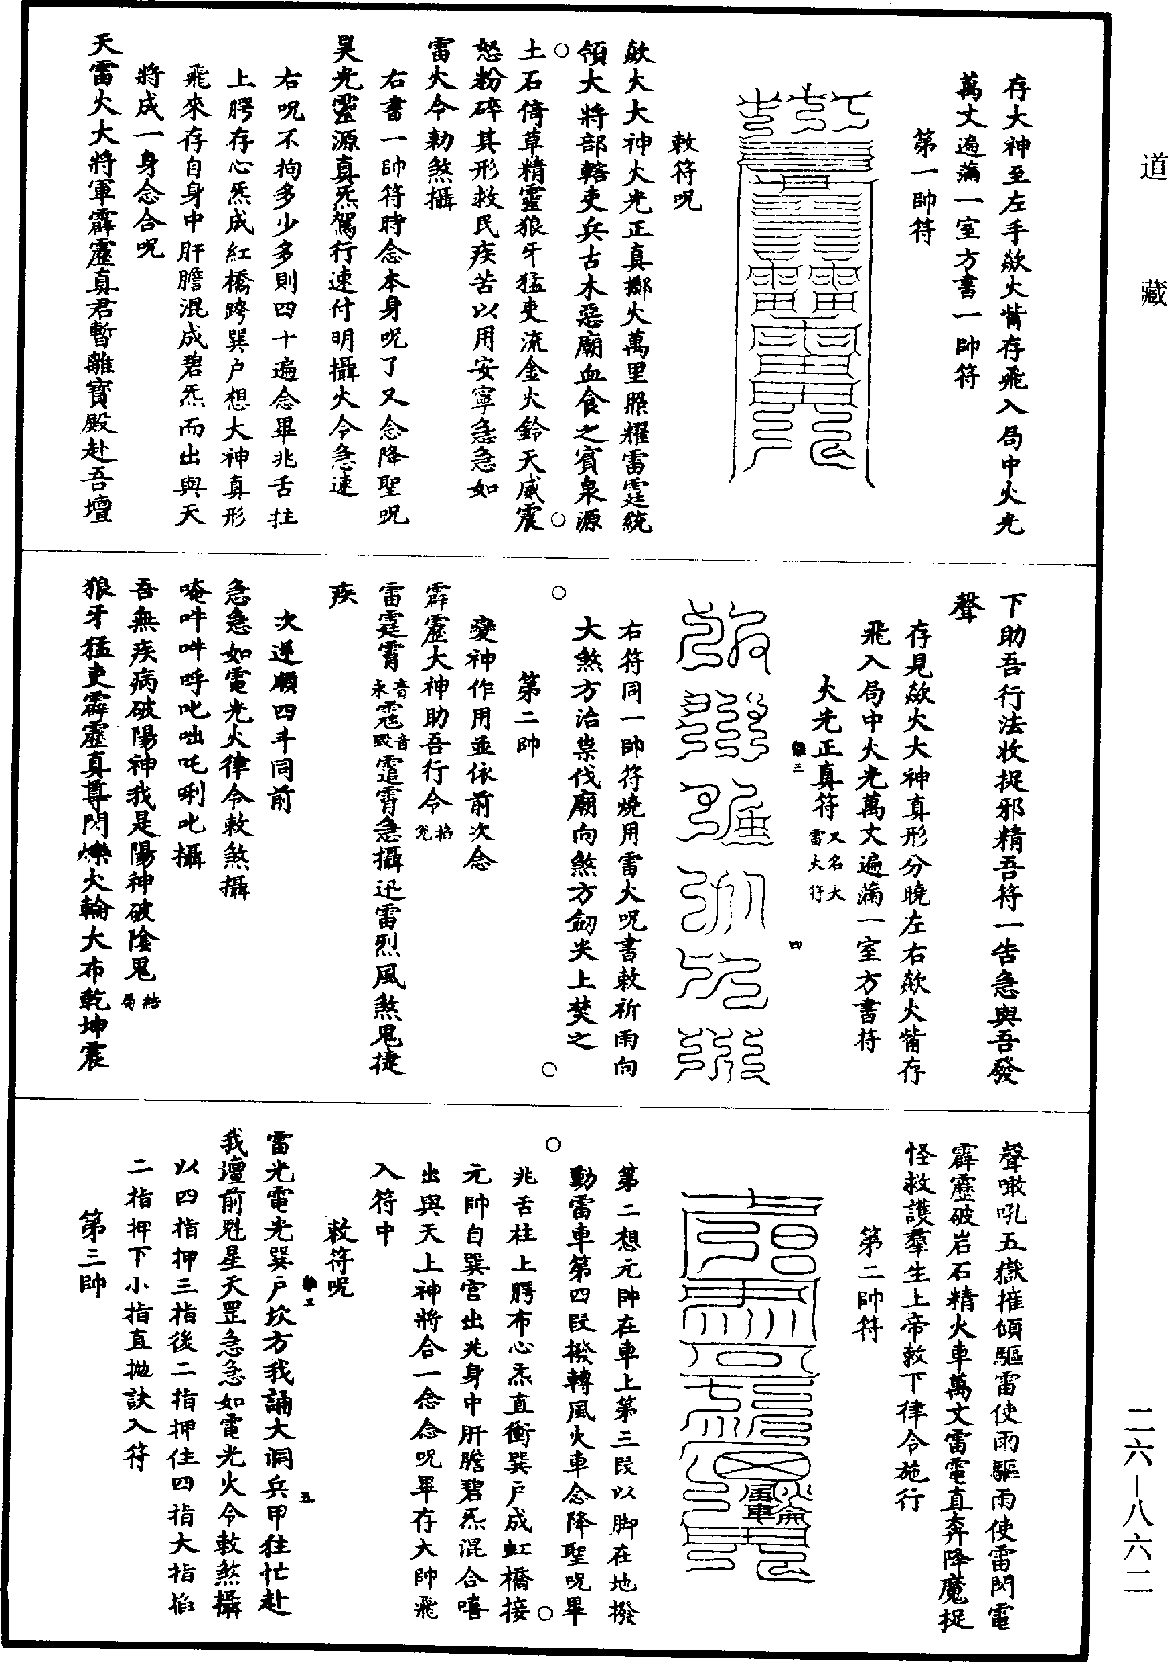 道藏
存大神至左手歘火觜存飛入局中火光
萬丈遍滿一室方書一帥符
第一帥符
敕符呪
歘火大神火光正真擲火萬里照耀雷霆統
領大將部轄吏兵古木惡廟血食之賓泉源
土石倚草精靈狼牙猛吏流金火鈴天威震
怒粉碎其形救民疾苦以用安寧急急如
雷火令勅煞攝
右書一帥符時念本身呪了又念降聖呪
昊光靈源真炁駕行速付明攝火令急速
右呪不拘多少多則四十遍念畢兆舌拄
上腭存心炁成紅橋跨巽户想大神真形
飛來存自身中肝膽混成碧炁而出與天
將成一身念合呪
天雷火大將軍霹靂真君暫離寶殿赴吾壇
下助吾行法收捉邪精吾符一告急與吾發
聲
存見歘火大神真形分曉左右歘火觜存
飛入局中火光萬丈遍滿一室方書符
火光正真符又名大雷火符
三
四
右符同一帥符燒用雷火呪書敕祈雨向
大煞方治祟伐廟向煞方劒尖上焚之
第二帥
變神作用並依前次念
霹靂大神助吾行令掐兌
雷霆霄音永 音毀 霄急攝迅雷烈風煞鬼捷
疾
次逆順四斗同前
急急如電光火律令敕煞攝
唵吽吽呼叱咄吒唎叱攝
吾無疾病破陽神我是陽神破陰鬼結局
狼牙猛吏霹靂真尊閃爍火輪大布乾坤震
聲噉吼五嶽摧傾驅雷使雨驅雨使雷閃電
霹靂破岩石精火車萬丈雷電直奔降魔捉
怪救護羣生上帝敕下律令施行
第二帥符
第二想元帥在車上第三段以脚在地撥
動雷車第四段撥轉風火車念降聖呪畢
兆舌柱上腭布心炁直衝巽户成虹橋接
元帥自巽宮出兆身中肝膽碧炁混合嘻
出與天上神將合一念念呪畢存大帥飛
入符中
敕符呪
五
雷光電光巽户坎方我誦大洞兵甲往忙赴
我壇前尅星天罡急急如電光火令敕煞攝
以四指押三指後二指押住四指大指掐
二指押下小指直拋訣入符
第三帥
二六—八六二